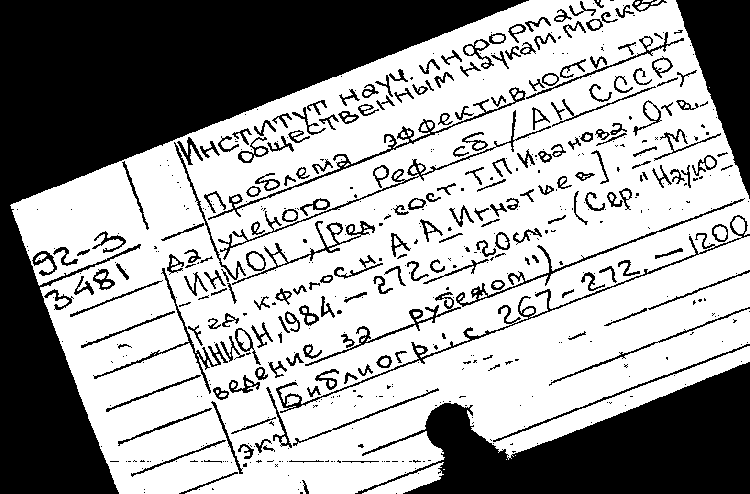 Институт науч. информаци
общественным наукам. Москва
Проблема эффективности тру-
92-3
3481
да ученого : Реф. сб. / АН СССР,
ИНИОН ; [Ред.-сост. Т.П. Иванова ; Отв.
ред. к.филос.н. А.А. Игнатьев]. — М. :
ИНИОН, 1984. — 272 с. ; 20 см. — (Сер. "Науко-
ведение за рубежом").
Библиогр.: с. 267-272. — 1200
экз.